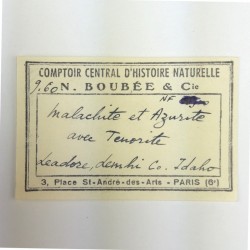 COMPTOIR CENTRAL D'HISTOIRE NATURELLE
9.60 N. BOUBÉE & Cie
NF
Malachite et Azurite
avec Tenorite
Leadore, Lemhi Co. Idaho
3, Place St-André-des-Arts - PARIS (6e)